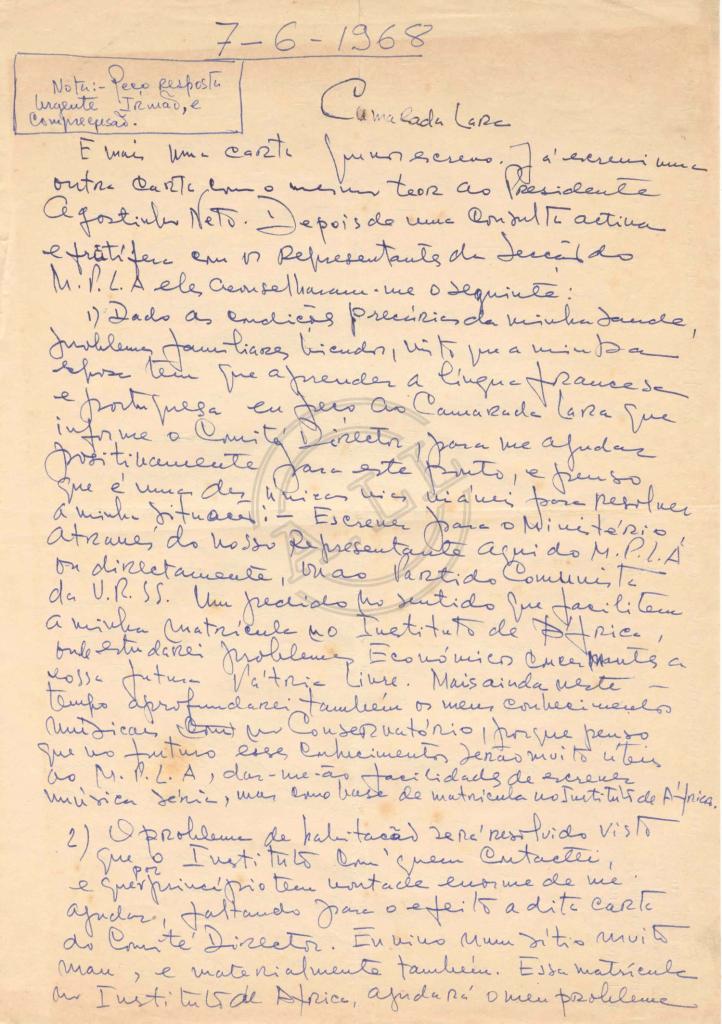 7-6-1968
Nota:- Peço resposta
urgente Irmão, e
compreensão.
Camarada Lara
É mais uma carta que vos escrevo. Já escrevi uma
outra carta com o mesmo teor ao Presidente
Agostinho Neto. Depois de uma consulta activa
e frutífera com os Representantes da Secção do
M.P.L.A eles aconselharam-me o seguinte:
1) Dado as condições precárias da minha saude,
problemas familiares, visto que a minha
esposa tem que aprender a língua francesa
e portuguesa eu peço ao Camarada Lara que
informe o Comité Director, para me ajudar
positivamente para este ponto, e penso
que é uma das únicas vias viáveis para resolver
a minha situação:- Escrever para o Ministério
através do nosso Representante aqui do M.P.L.A
ou directamente, ou ao Partido Comunista
da U.R.SS. Um pedido no sentido que facilitem
a minha matrícula no Instituto de África,
onde estudarei problemas Económicos concernentes a
nossa futura Pátria Livre. Mais ainda neste
tempo aprofundarei também os meus conhecimentos
musicais no Conservatório, porque penso
que no futuro esses conhecimentos serão muito úteis
ao M.P.L.A, dar-me-ão facilidades de escrever
música séria, mas como base de matrícula no Instituto de África.
2) O problema de habitação será resolvido visto
que o Instituto com quem contactei,
e que por princípio tem vontade enorme de me
ajudar, faltando para o efeito a dita carta
do Comité Director. Eu vivo num sítio muito
mau, e materialmente também. Essa matrícula
no Instituto de África, ajudará o meu problema
A.T.L.L